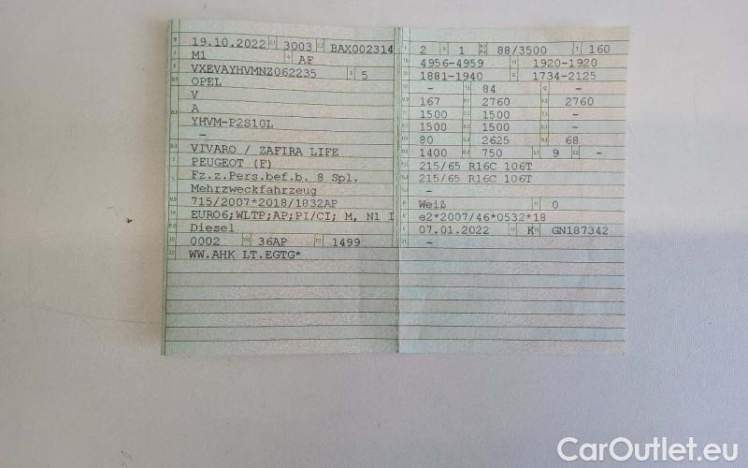 19.10.2022 3003 BAX002314
M1 AF
VXEVAYHVMNZ062235 5
OPEL
V
A
YHVM-P2S10L
-
VIVARO / ZAFIRA LIFE
PEUGEOT (F)
Fz.z.Pers.bef.b. 8 Spl.
Mehrzweckfahrzeug
715/2007*2018/1832AP
EURO6;WLTP;AP;PI/CI; M, N1 I
Diesel
0002 36AP 1499
WW.AHK LT.EGTG*
2 1 88/3500 160
4956-4959 1920-1920
1881-1940 1734-2125
- 84 -
167 2760 2760
1500 1500 -
1500 1500 -
80 2625 68
1400 750 9 -
215/65 R16C 106T
215/65 R16C 106T
-
Weiß 0
e2*2007/46*0532*18
07.01.2022 K GN187342
-
CarOutlet.eu